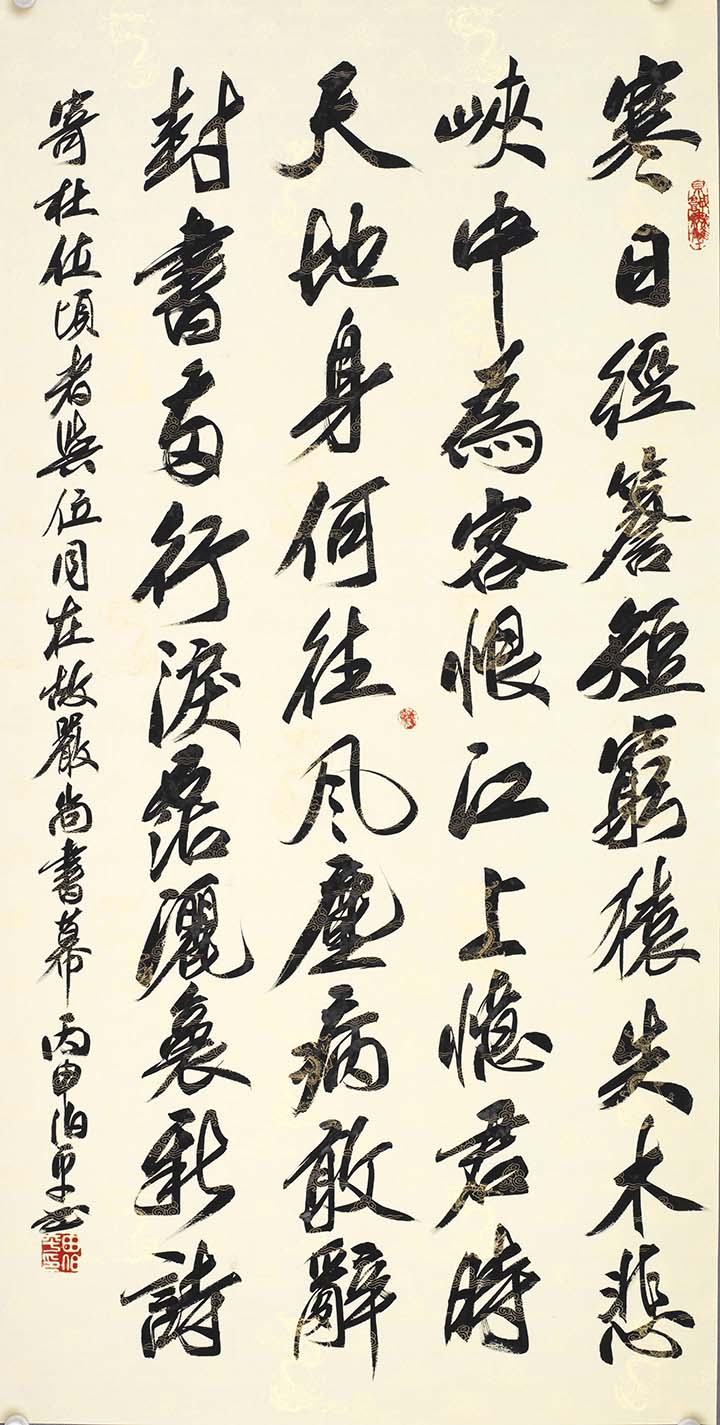 寒日經簷短窮猿失木悲
峽中為客恨江上憶君時
天地身何往风塵病敢辭
封書兩行淚霑灑裛新詩
寄杜位頃者與位同在故嚴尚書幕 丙申伯平书
田伯平印